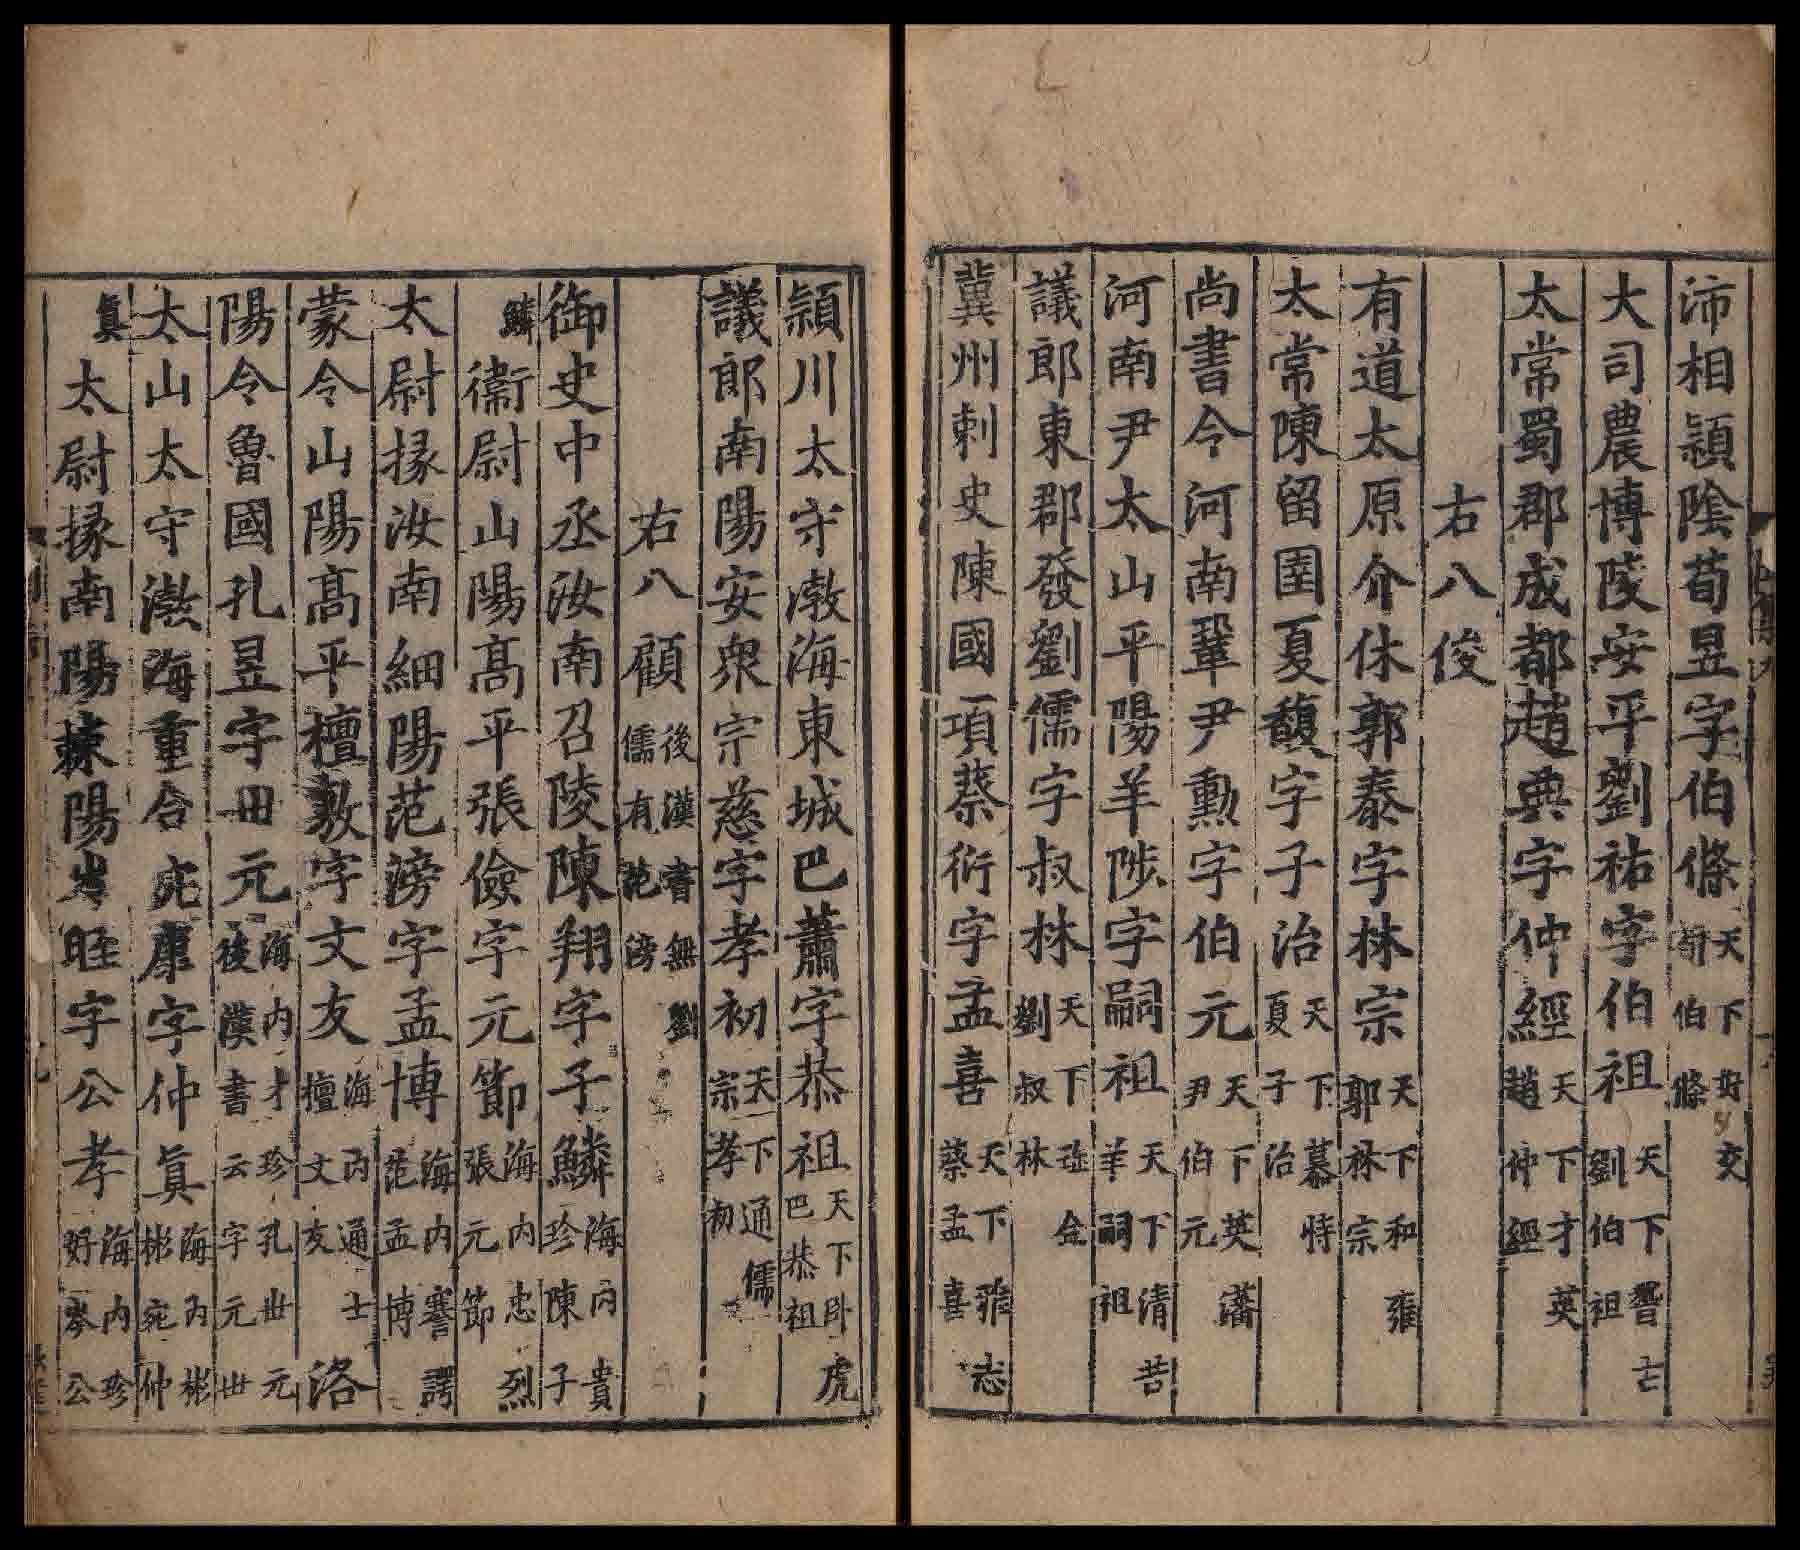 沛相潁陰荀昱字伯條天下好交荀伯條
大司農博陵安平劉祐字伯祖天下劉伯祖
太常蜀郡成都趙典字仲經天下才英趙仲經
右八俊
有道太原介休郭泰字林宗天下和雍郭林宗
太常陳留圉夏馥字子治天下慕恃夏子治
尚書令河南鞏尹勳字伯元天下英藩尹伯元
河南尹太山平陽羊陟字嗣祖天下清苦羊嗣祖
議郎東郡發劉儒字叔林天下珤金劉叔林
冀州刺史陳國項蔡衍字孟喜天下雅志蔡孟喜
潁川太守渤海東城巴蕭字恭祖天下卧虎巴恭祖
議郎南陽安衆宗慈字孝初天下通儒宗孝初
右八顧後漢書無劉儒有范滂
御史中丞汝南召陵陳翔字子鱗海内貴珍陳子
鱗衞尉山陽高平張儉字元節海内忠烈張元節
太尉掾汝南細陽范滂字孟博海内謇諤范孟博
蒙令山陽高平檀敷字文友海内通士檀文友洛
陽令魯國孔昱字世元海内才珍孔世元後漢書云字元世
太山太守渤海重合宛康字仲眞海内彬彬宛仲
眞太尉掾南陽棘陽岑晊字公孝海内珍好岑公